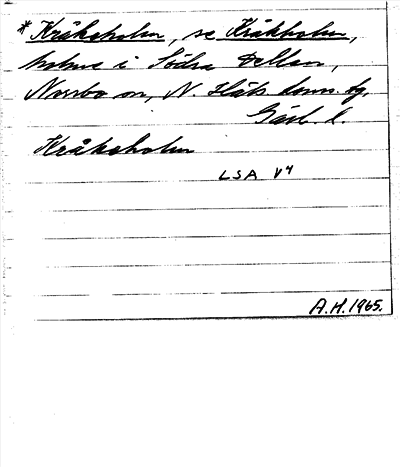 *Kråksholm, se Kråkholm,
holme i Södra Dellen,
Norrbo sn, N. Häls. doms. tg.
Gävl. l.
Kråksholm
LSA V4
A.H. 1965.